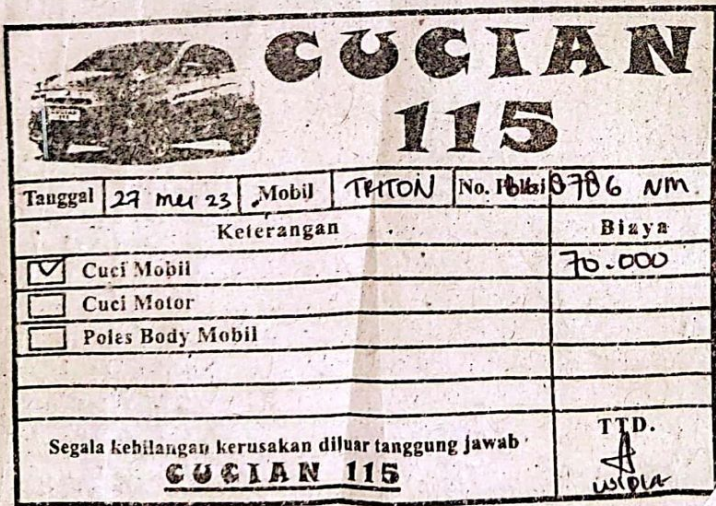 CUCIAN
115
Tanggal 27 mei 23 Mobil TRITON No. 8786 NM
Keterangan Biaya
Cuci Mobil 70.000
Cuci Motor
Poles Body Mobil
Segala kebilangan kerusakan diluar tanggung jawab
CUCIAN 115
TTD.